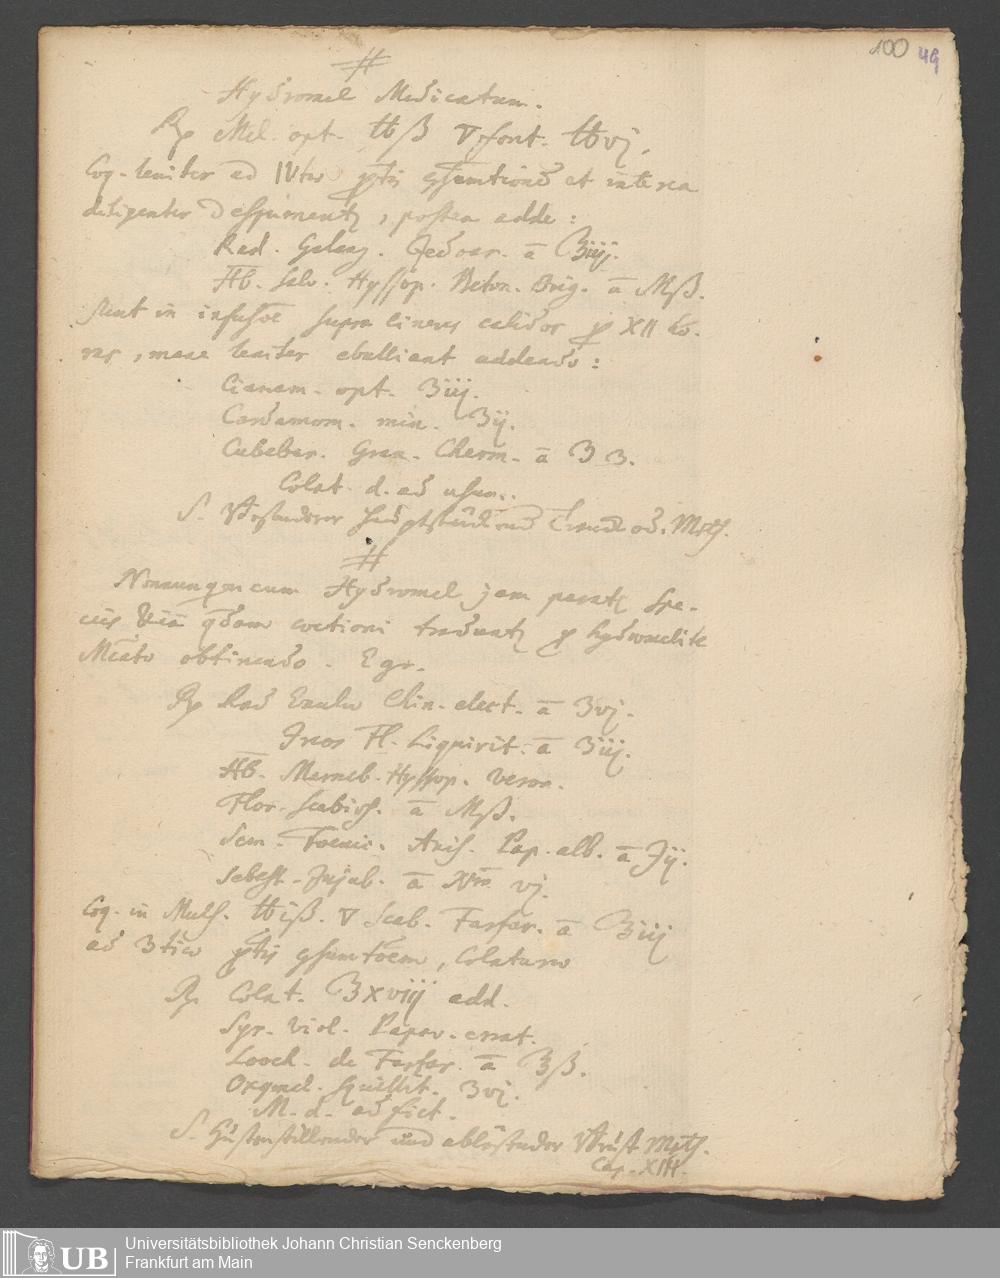 100 49
#
Hydromel Medicatum.
Rp Mel. opt. ℔ß ▽ font. ℔vj.
Coq. leniter ad IVtæ ptis gsumtione et interea
diligenter despumentz, postea adde:
Rad. Galang. Zedoar. ā ℥iiij.
Hb. Salv. Hyssop. Beton. Orig. ā Mß.
Stent in infusōe supra cineres calidos p XII ho-
ras, mane leniter ebulliant addendo:
Cinnam. opt. ʒiij.
Cardamom. min. ʒij.
Cubebar. Gran. Cherm. ā ʒ
Colat. d. ad usum.
S. und
#
Nonnunqm cum Hydromel jam paratz Spe-
cies coctioni traduntz p hydromelite
Mcāto obtinendo. E gr.
Rp Rad Enulæ Chin. elect. ā ʒvj.
Ireos Fl. Liquirit. ā ʒiij.
Hb. Marrub. Hyssop. Veron.
Flor. Scabios. ā Mß.
Sem. Foenic. Anis. Pap. alb. ā ʒij.
Sebest. Jujub. ā Nrō vj.
Coq. in Muls. ℔iß. ▽ Scab. Farfar. ā ℥iij
ad 3tiæ ptis gsumtōem, Colaturæ
Rp Colat. ℥xviij add.
Syr. Viol. Papav. errat.
Looch. de Farfar. ā ℥ß.
Oxymel. Squillit. ʒvj.
M. d. ad fict.
S. Hustenstillender und ablösender Brust Meth.
Cap. XIII.
UB Universitätsbibliothek Johann Christian Senckenberg
Frankfurt am Main